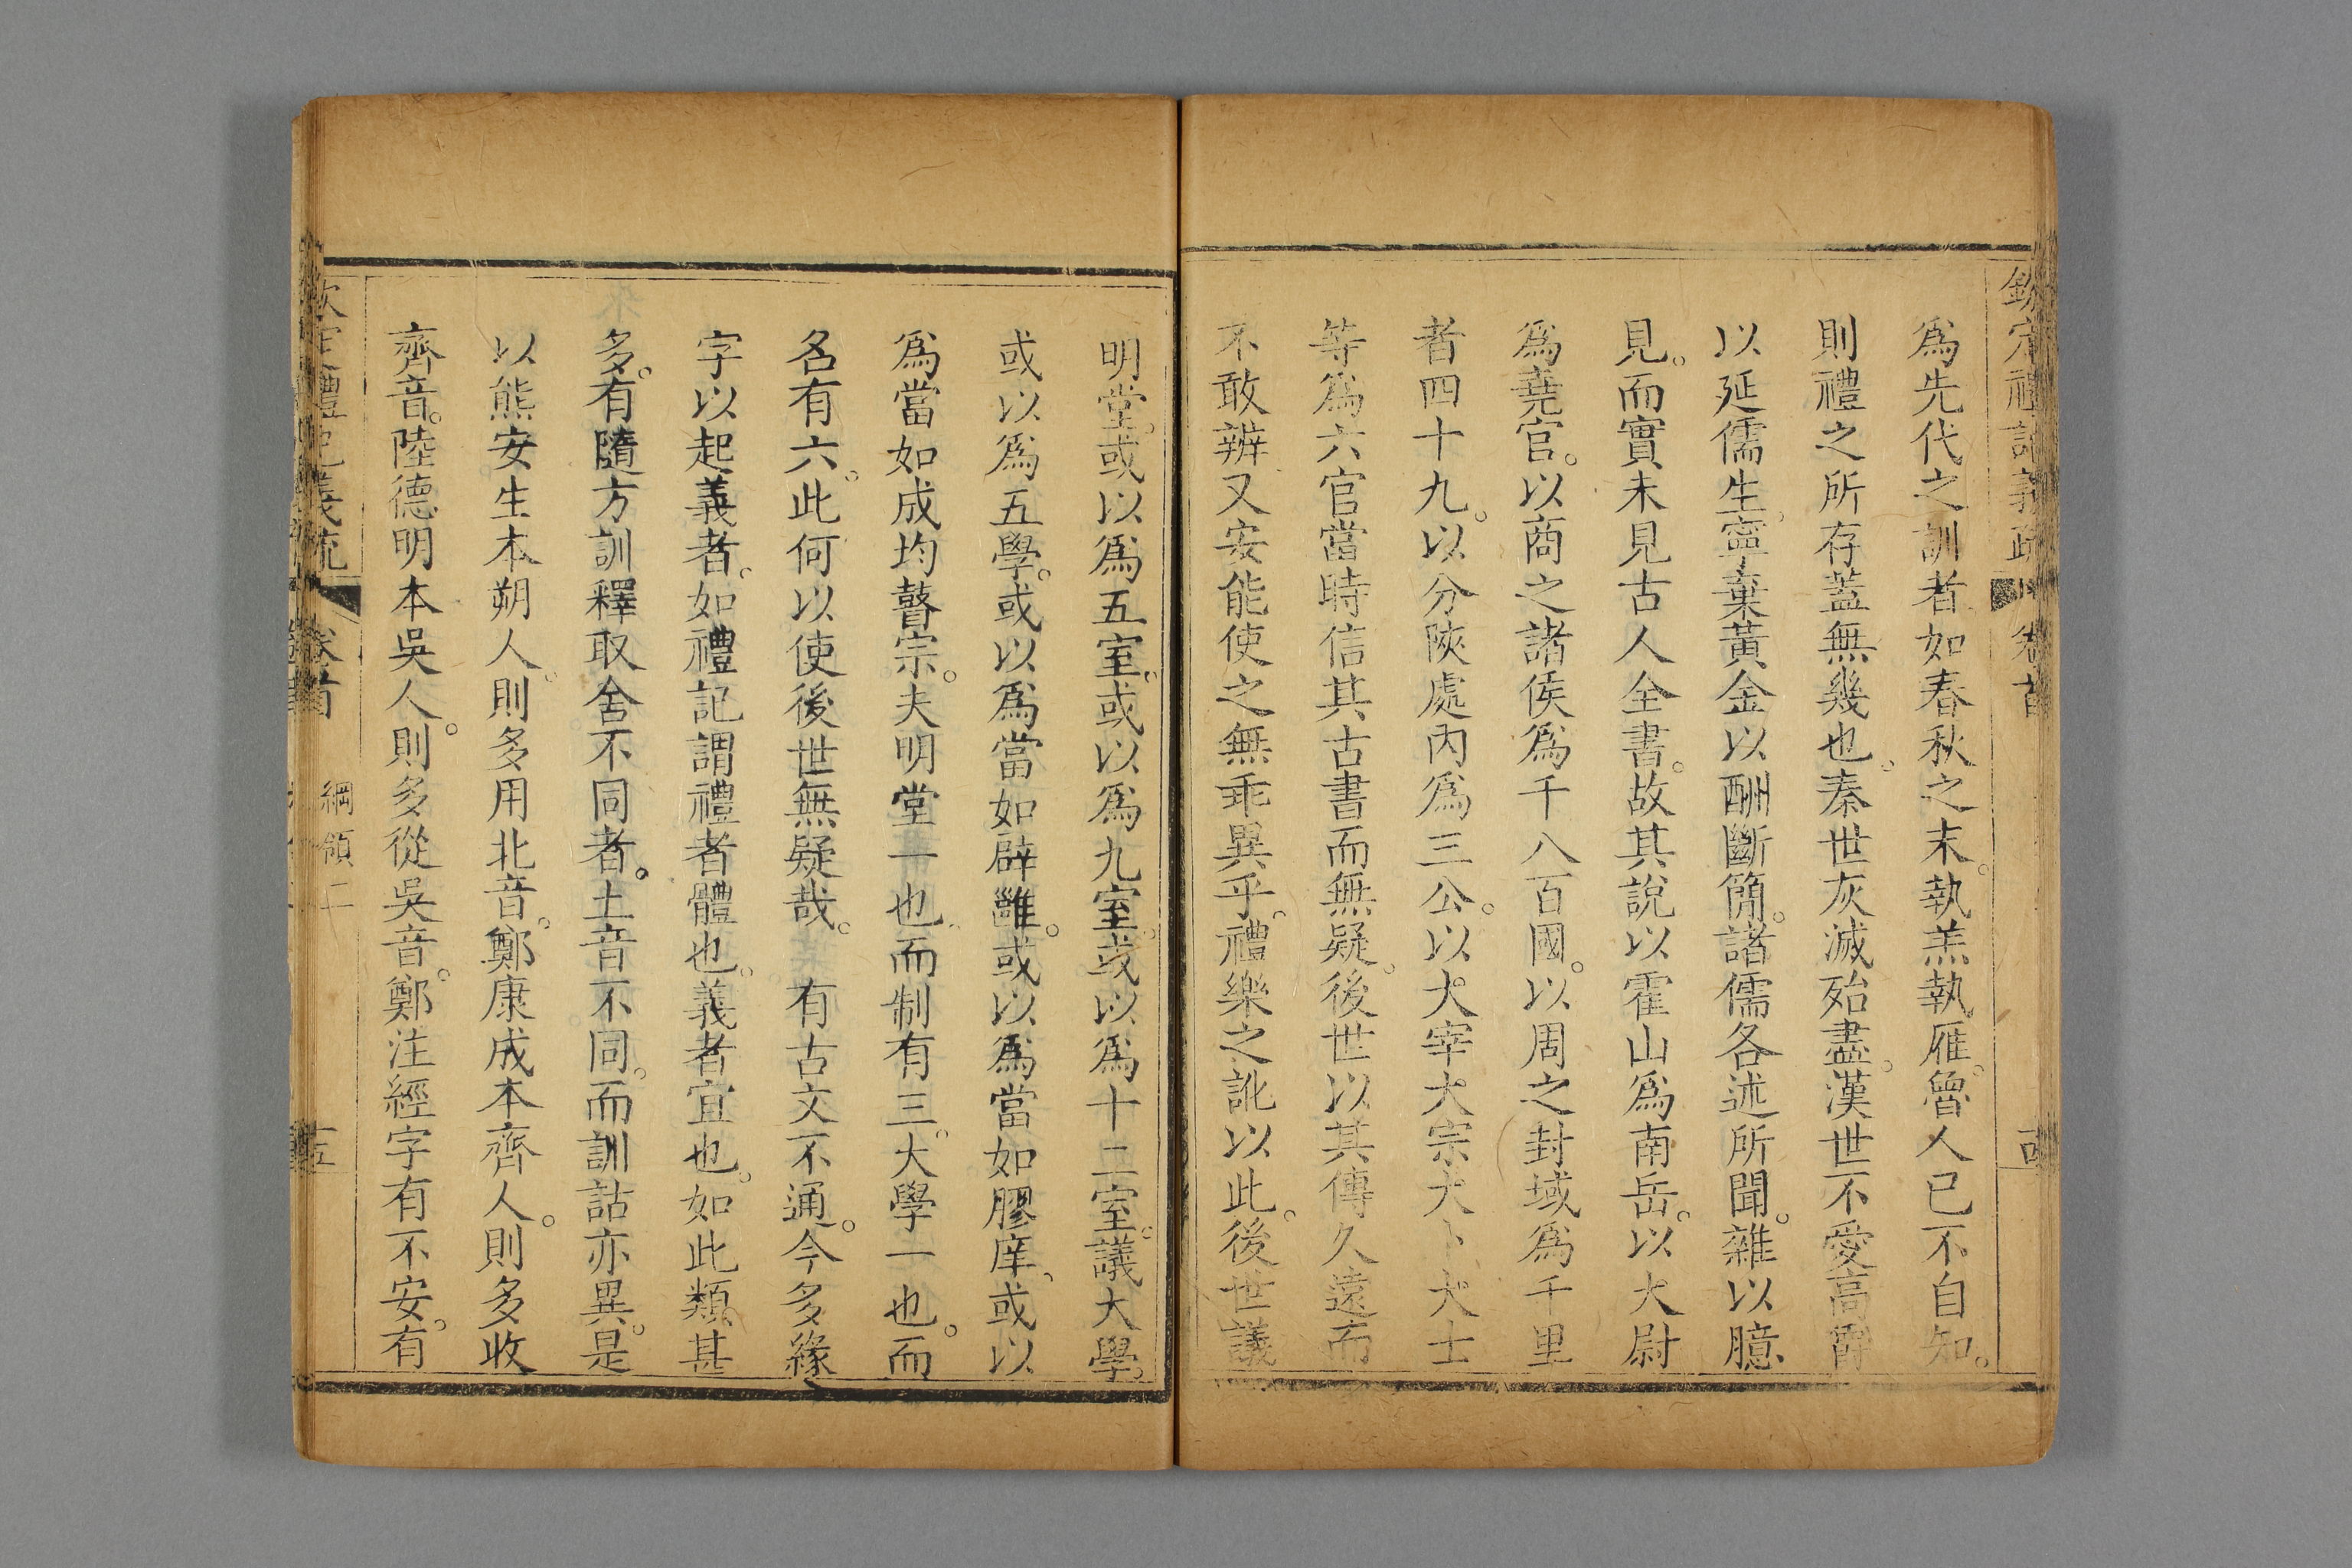 欽定禮記義疏 卷首
為先代之訓者如春秋之末。執羔執雁。魯人已不自知。
則禮之所存蓋無幾也。秦世灰滅殆盡。漢世不愛高爵
以延儒生。寧棄黃金以酬斷簡。諸儒各述所聞。雜以臆
見。而實未見古人全書。故其說以霍山為南岳。以大尉
為堯官。以商之諸侯為千八百國。以周之封域為千里
者四十九。以分陜處內為三公。以大宰大宗大卜大士
等為六官當時信其古書而無疑。後世以其傳久遠而
不敢辨又安能使之無乖異乎。禮樂之訛以此。後世議
明堂。或以為五室。或以為九室。或以為十二室。議大學。
或以為五學。或以為當如辟雝。或以為當如膠庠。或以
為當如成均瞽宗。夫明堂一也。而制有三。大學一也。而
名有六。此何以使後世無疑哉。 有古文不通。今多緣
字以起義者。如禮記謂禮者體也。義者宜也。如此類甚
多。有隨方訓釋取舍不同者。土音不同。而訓詁亦異。是
以熊安生本朔人。則多用北音。鄭康成本齊人。則多收
齊音。陸德明本吳人。則多從吳音。鄭注經字有不安。有
欽定禮記義疏 卷首 綱領二 五